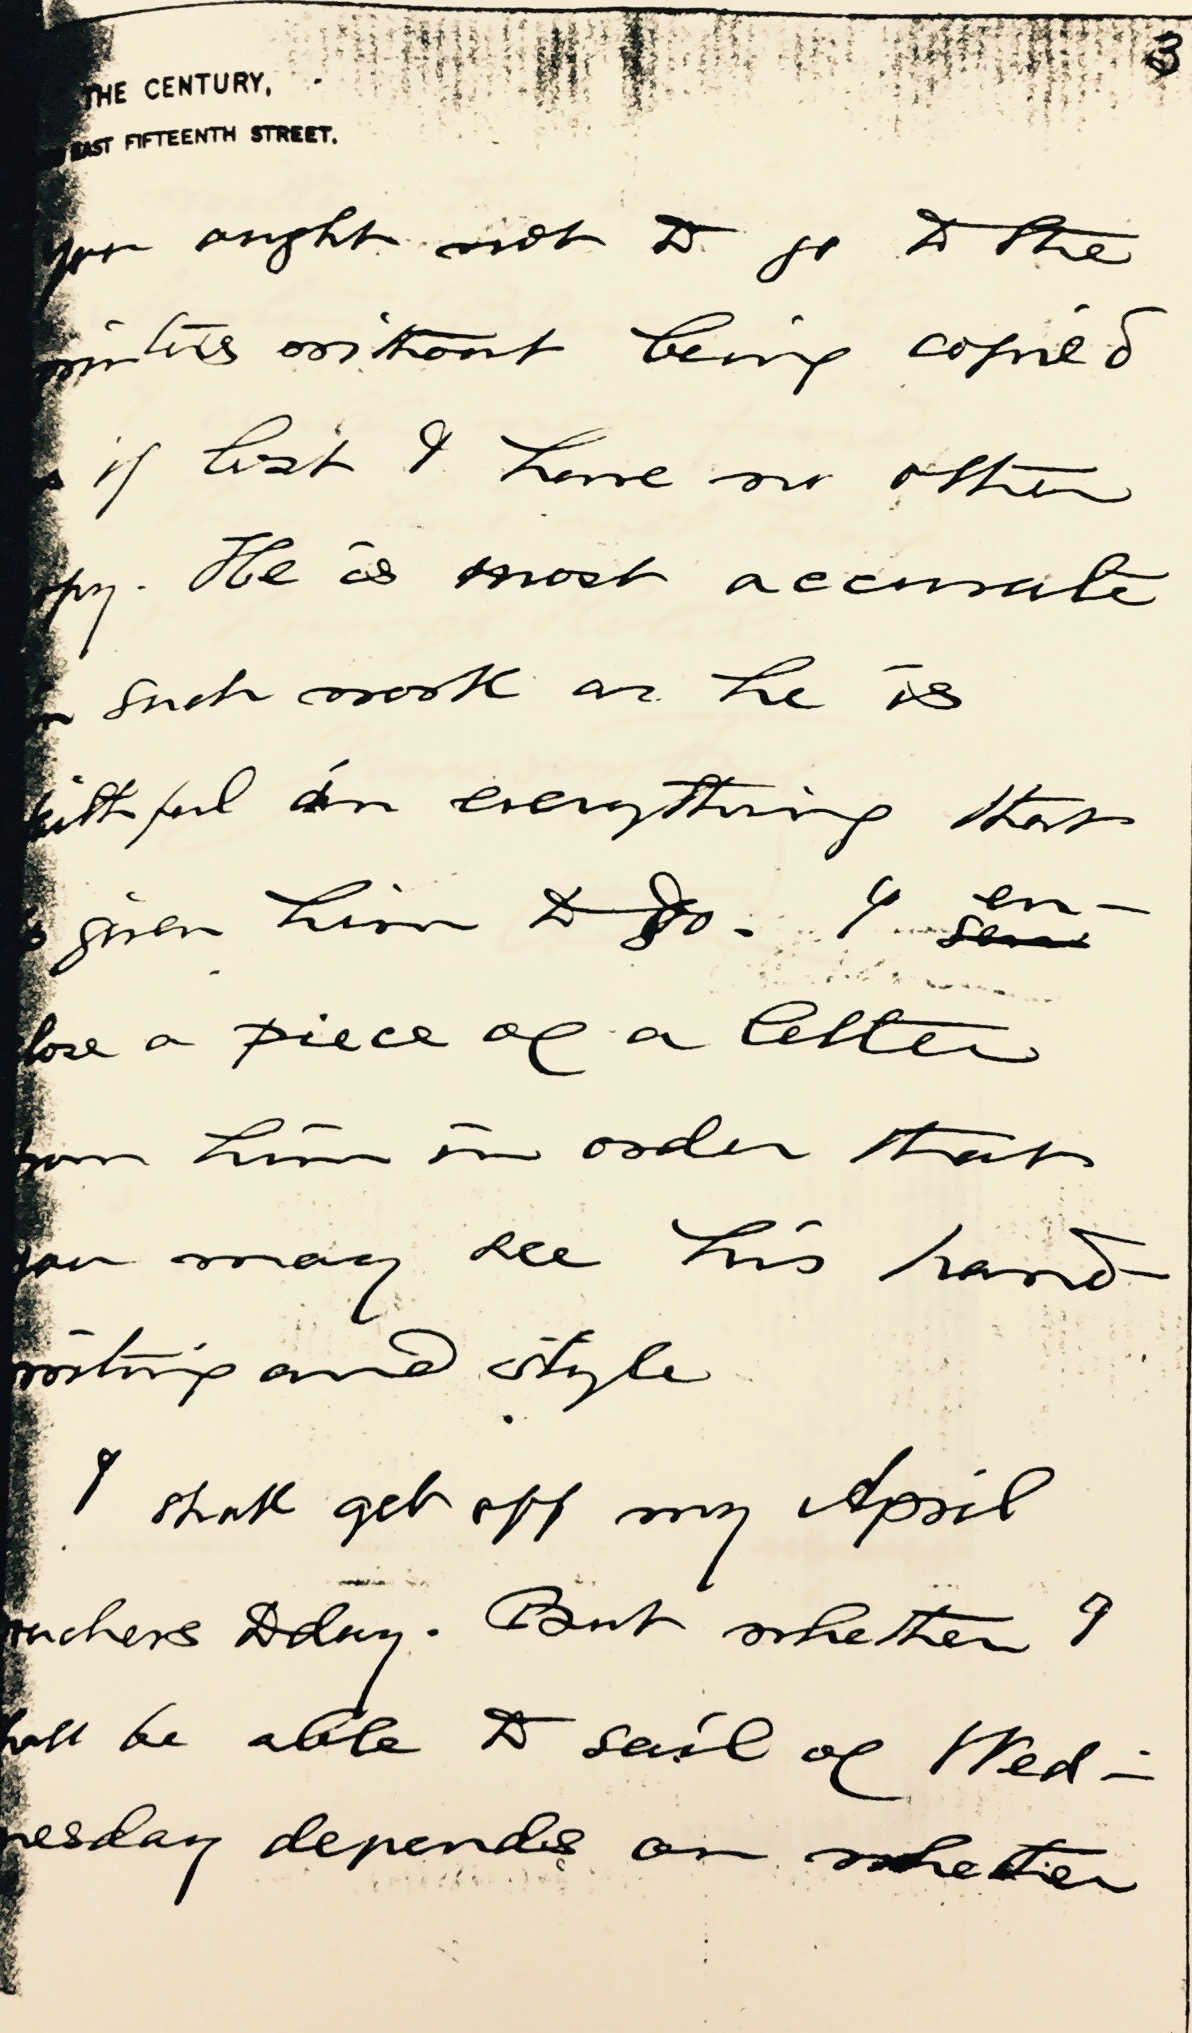 3
THE CENTURY,
EAST FIFTEENTH STREET.
you ought not to go to the
without being copied
if lost I have no other
py. He is most accurate
such work as he is
aithful in everything that
given him to do. I en-
sen
lose a piece of a letter
from him in order that
you may see his hand-
writing and style
I shall get off my April
vouchers today. But whether I
shall be able to sail of Wed-
nesday depends on whether